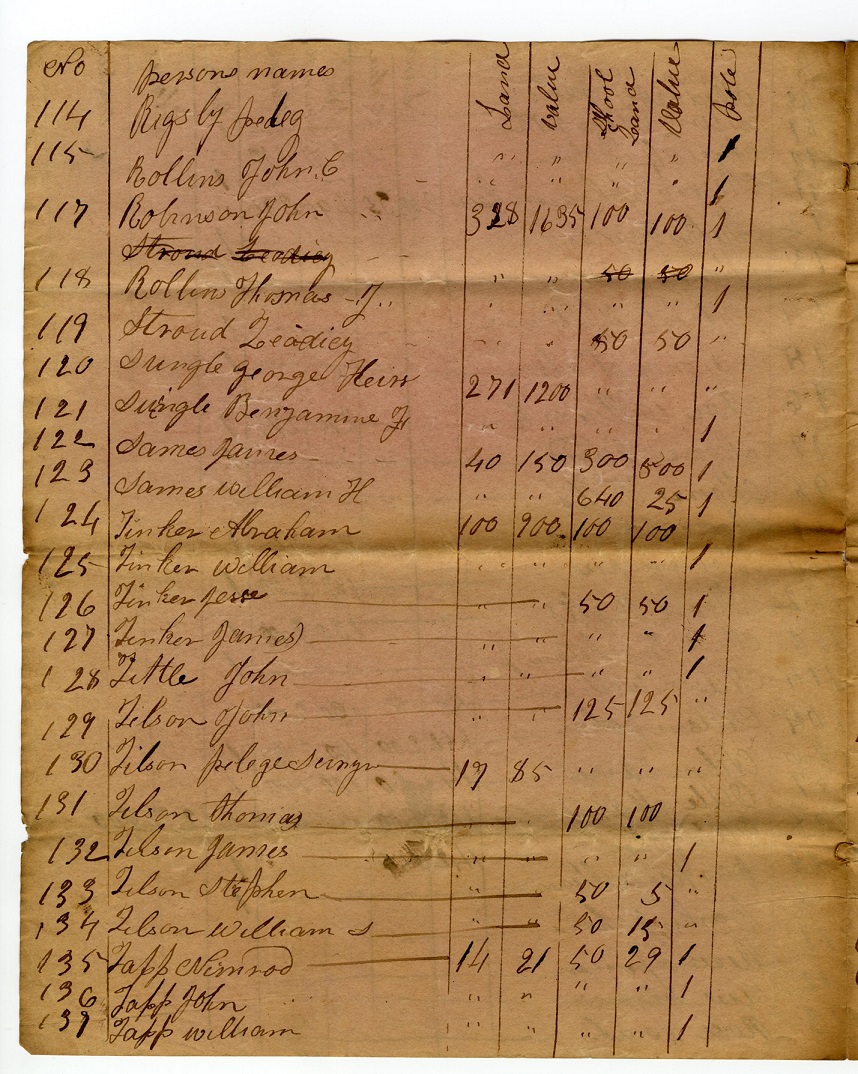 No persons names Land value Shool Land Value pole
114 Rigsby " " " " 1
115 Rollins John C " " " " 1
117 Robinson John 328 1635 100 100 1
Stroud Leadicy " " 50 50 "
118 Rollins Thomas J " " " " 1
119 Stroud Leadicy " " 50 50 "
120 Sungle george Heirs 271 1200 " " "
121 Sungle Benjamine F " " " " 1
122 Sames James 40 150 300 500 1
123 Sames william H " " 640 25 1
124 Tinker Abraham 100 900 100 100
125 Tinker william " " " " 1
126 Tinker Jesse " 50 50 1
127 Tinker James " " " 1
128 Tittle John " " " " 1
129 Tilson John " " 125 125 "
130 Tilson pelege 17 85 " " "
131 Tilson thomas " 100 100
132 Tilson James " " " " 1
133 Tilson Stephen " 50 5 "
134 Tilson william S " " 50 15 "
135 Tapp Nimrod 14 21 50 29 1
136 Tapp John " " " " 1
137 Tapp william " " " " 1